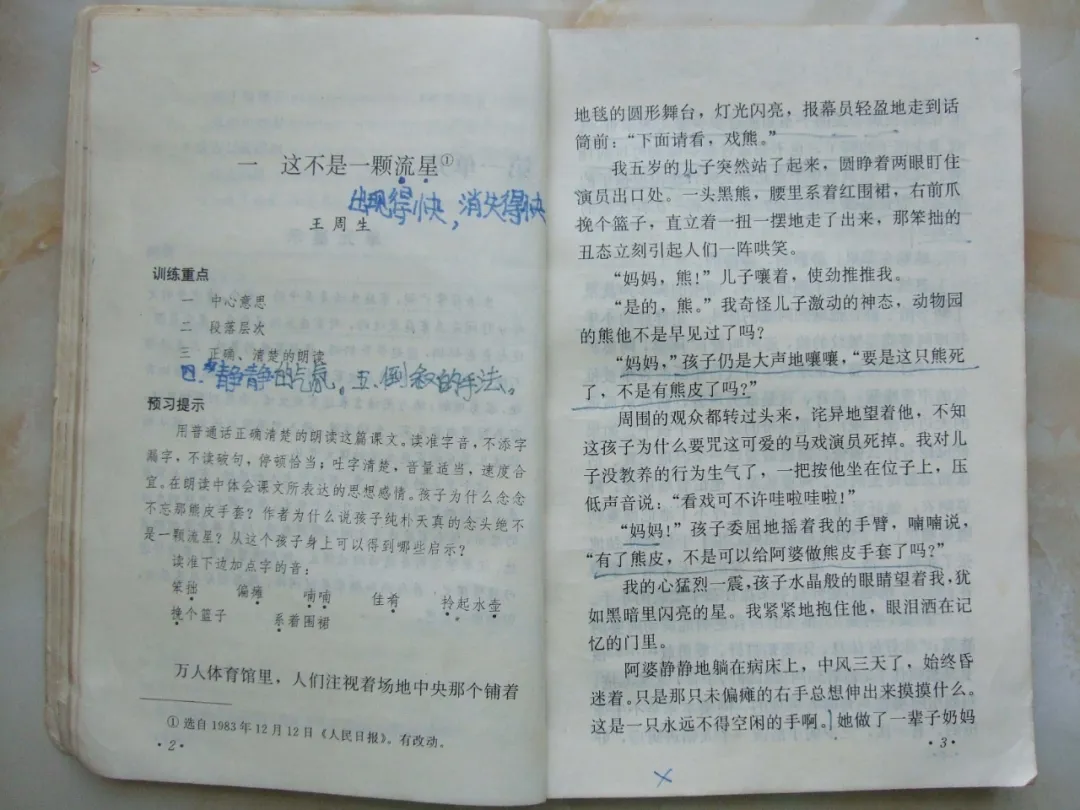 一 这不是一颗流星①
出现得快，消失得快
王周生
训练重点
一 中心意思
二 段落层次
三 正确、清楚的朗读
四.静静的气氛。五.倒叙的手法。
预习提示
用普通话正确清楚的朗读这篇课文。读准字音，不添字
漏字，不读破句，停顿恰当；吐字清楚，音量适当，速度合
宜。在朗读中体会课文所表达的思想感情。孩子为什么念念
不忘那熊皮手套？作者为什么说孩子纯朴天真的念头绝不
是一颗流星？从这个孩子身上可以得到哪些启示？
读准下边加点字的音：
笨拙 偏瘫 喃喃 佳肴 拎起水壶
挽个篮子 系着围裙
万人体育馆里，人们注视着场地中央那个铺着
① 选自1983年12月12日《人民日报》。有改动。
·2·
地毯的圆形舞台，灯光闪亮，报幕员轻盈地走到话
筒前：“下面请看，戏熊。”
我五岁的儿子突然站了起来，圆睁着两眼盯住
演员出口处。一头黑熊，腰里系着红围裙，右前爪
挽个篮子，直立着一扭一摆地走了出来，那笨拙的
丑态立刻引起人们一阵哄笑。
“妈妈，熊！”儿子嚷着，使劲推推我。
“是的，熊。”我奇怪儿子激动的神态，动物园
的熊他不是早见过了吗？
“妈妈，”孩子仍是大声地嚷嚷，“要是这只熊死
了，不是有熊皮了吗？”
周围的观众都转过头来，诧异地望着他，不知
这孩子为什么要咒这可爱的马戏演员死掉。我对儿
子没教养的行为生气了，一把按他坐在位子上，压
低声音说：“看戏可不许哇啦哇啦！”
“妈妈！”孩子委屈地摇着我的手臂，喃喃说，
“有了熊皮，不是可以给阿婆做熊皮手套了吗？”
我的心猛烈一震，孩子水晶般的眼睛望着我，犹
如黑暗里闪亮的星。我紧紧地抱住他，眼泪洒在记
忆的门里。
阿婆静静地躺在病床上，中风三天了，始终昏
迷着。只是那只未偏瘫的右手总想伸出来摸摸什么。
这是一只永远不得空闲的手啊。她做了一辈子奶妈
·3·